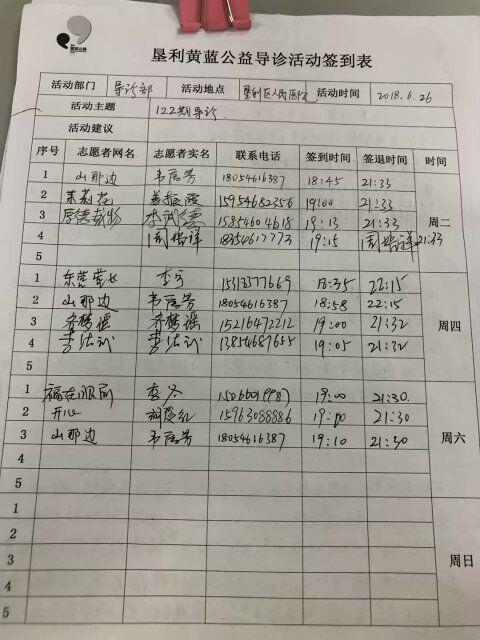 垦利黄蓝公益导诊活动签到表
活动部门 导诊部 活动地点 垦利区人民医院 活动时间 2018.6.26
活动主题 122期导诊
活动建议
序号 志愿者网名 志愿者实名 联系电话 签到时间 签退时间 时间
1 山那边 18054616387 18:45 21:33
2 茉莉花 15954682356 19:00 21:33
3 厚德载物 15854604618 19:13 21:33
周二
4 周培祥 18354617773 19:15 周培祥 21:33
5
1 15313377669 18:35 22:15
2 山那边 18054616387 18:58 22:15
周四
3 齐梦瑶 齐梦瑶 15216472212 19:00 21:32
4 13854687655 19:05 21:32
5
1 福在眼前 19:00 21:30
2 开心 15963088886 19:00 21:30
3 山那边 18054616387 19:10 21:30
周六
4
5
1
2
3
周日
4
5